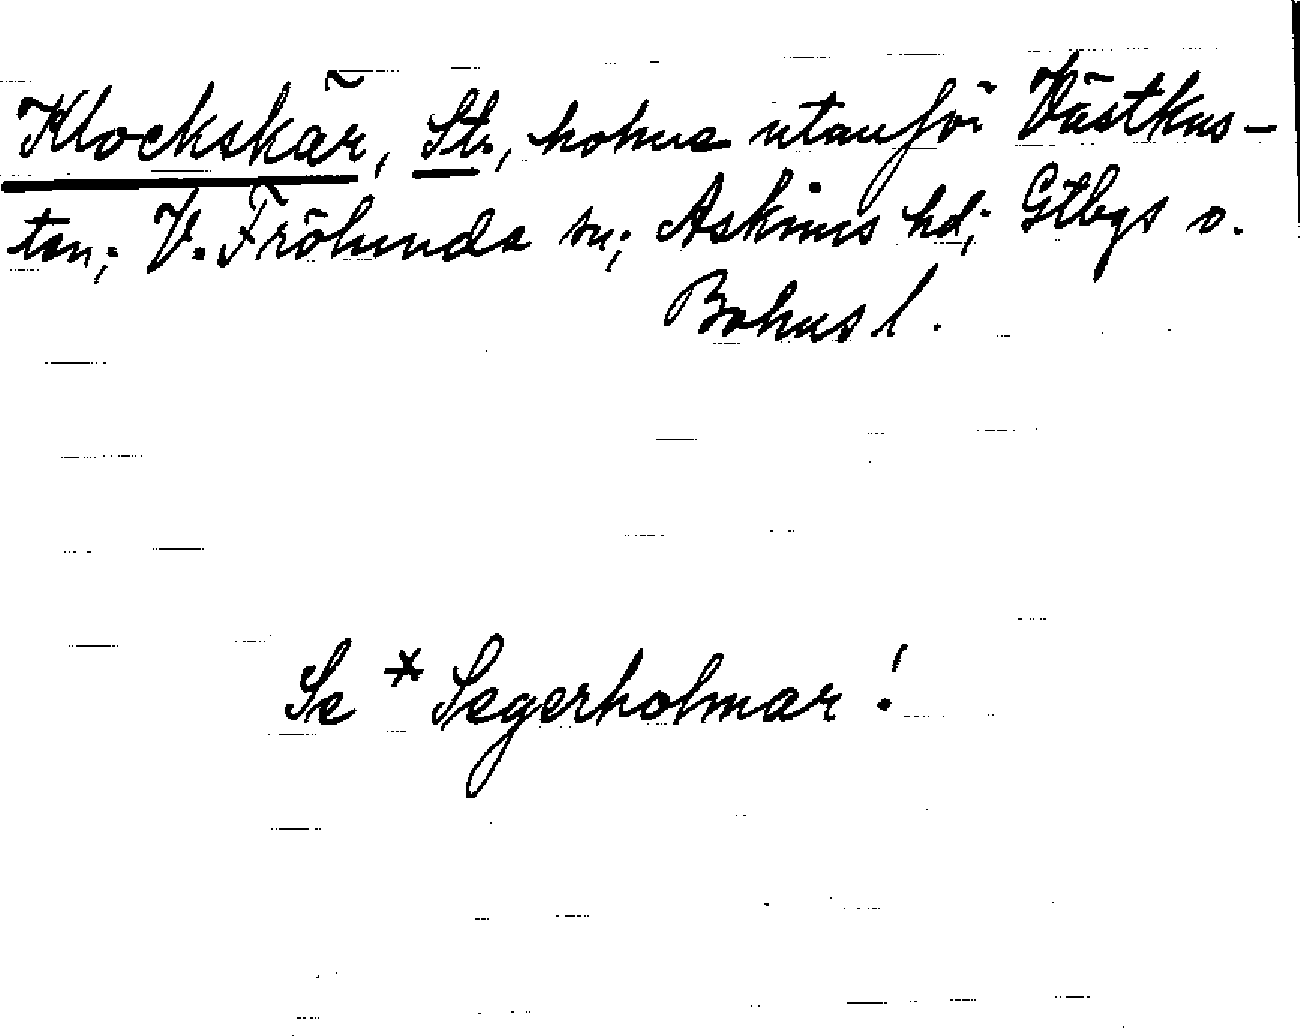 Klockskär, St., holme utanför Västkus-
ten; V. Frölunda sn; Askims hd; Gtbgs o.
Bohusl.
Se *Segerholmar!